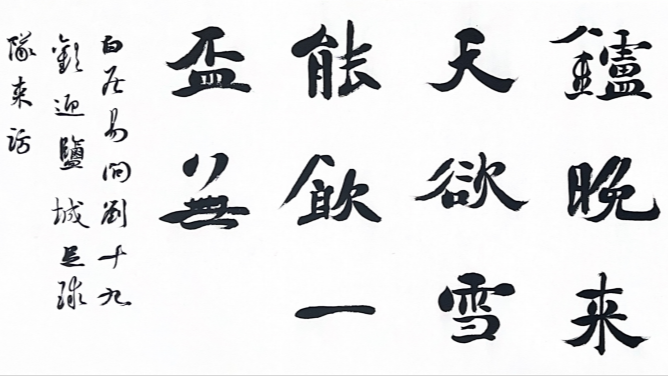 鑪晚来
天欲雪
能飲一
盃無
白居易問劉十九
歡迎鹽城足球
隊来訪